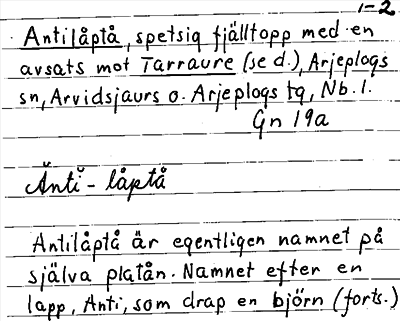 1-2
Antilåptå, spetsig fjälltopp med en
avsats mot Tarraure (se d.), Arjeplogs
sn, Arvidsjaurs o. Arjeplogs tg, Nb. l.
Gn 19a
Ănti̮ - låptå
Antilåptå är egentligen namnet på
själva platån. Namnet efter en
lapp, Anti, som drap en björn (forts.)